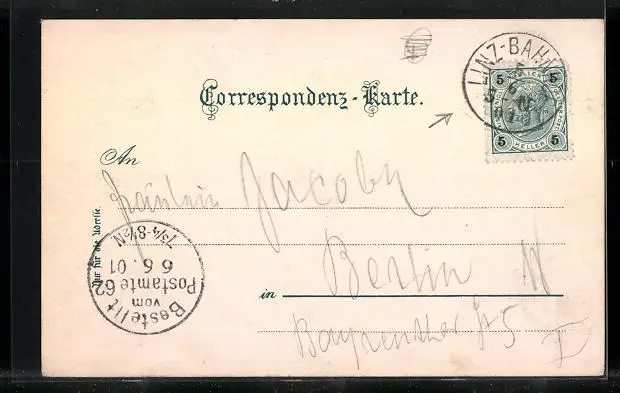 LINZ-BAHN
5 5
HELLER
5 5
HELLER
Correspondenz-Karte.
An
Fräulein Jacoby
Nur für die Adresse.
Berlin W
in
Bayreuther
I
Bestellt
vom
Postamte 62
6 6. 01
7¾-8½N